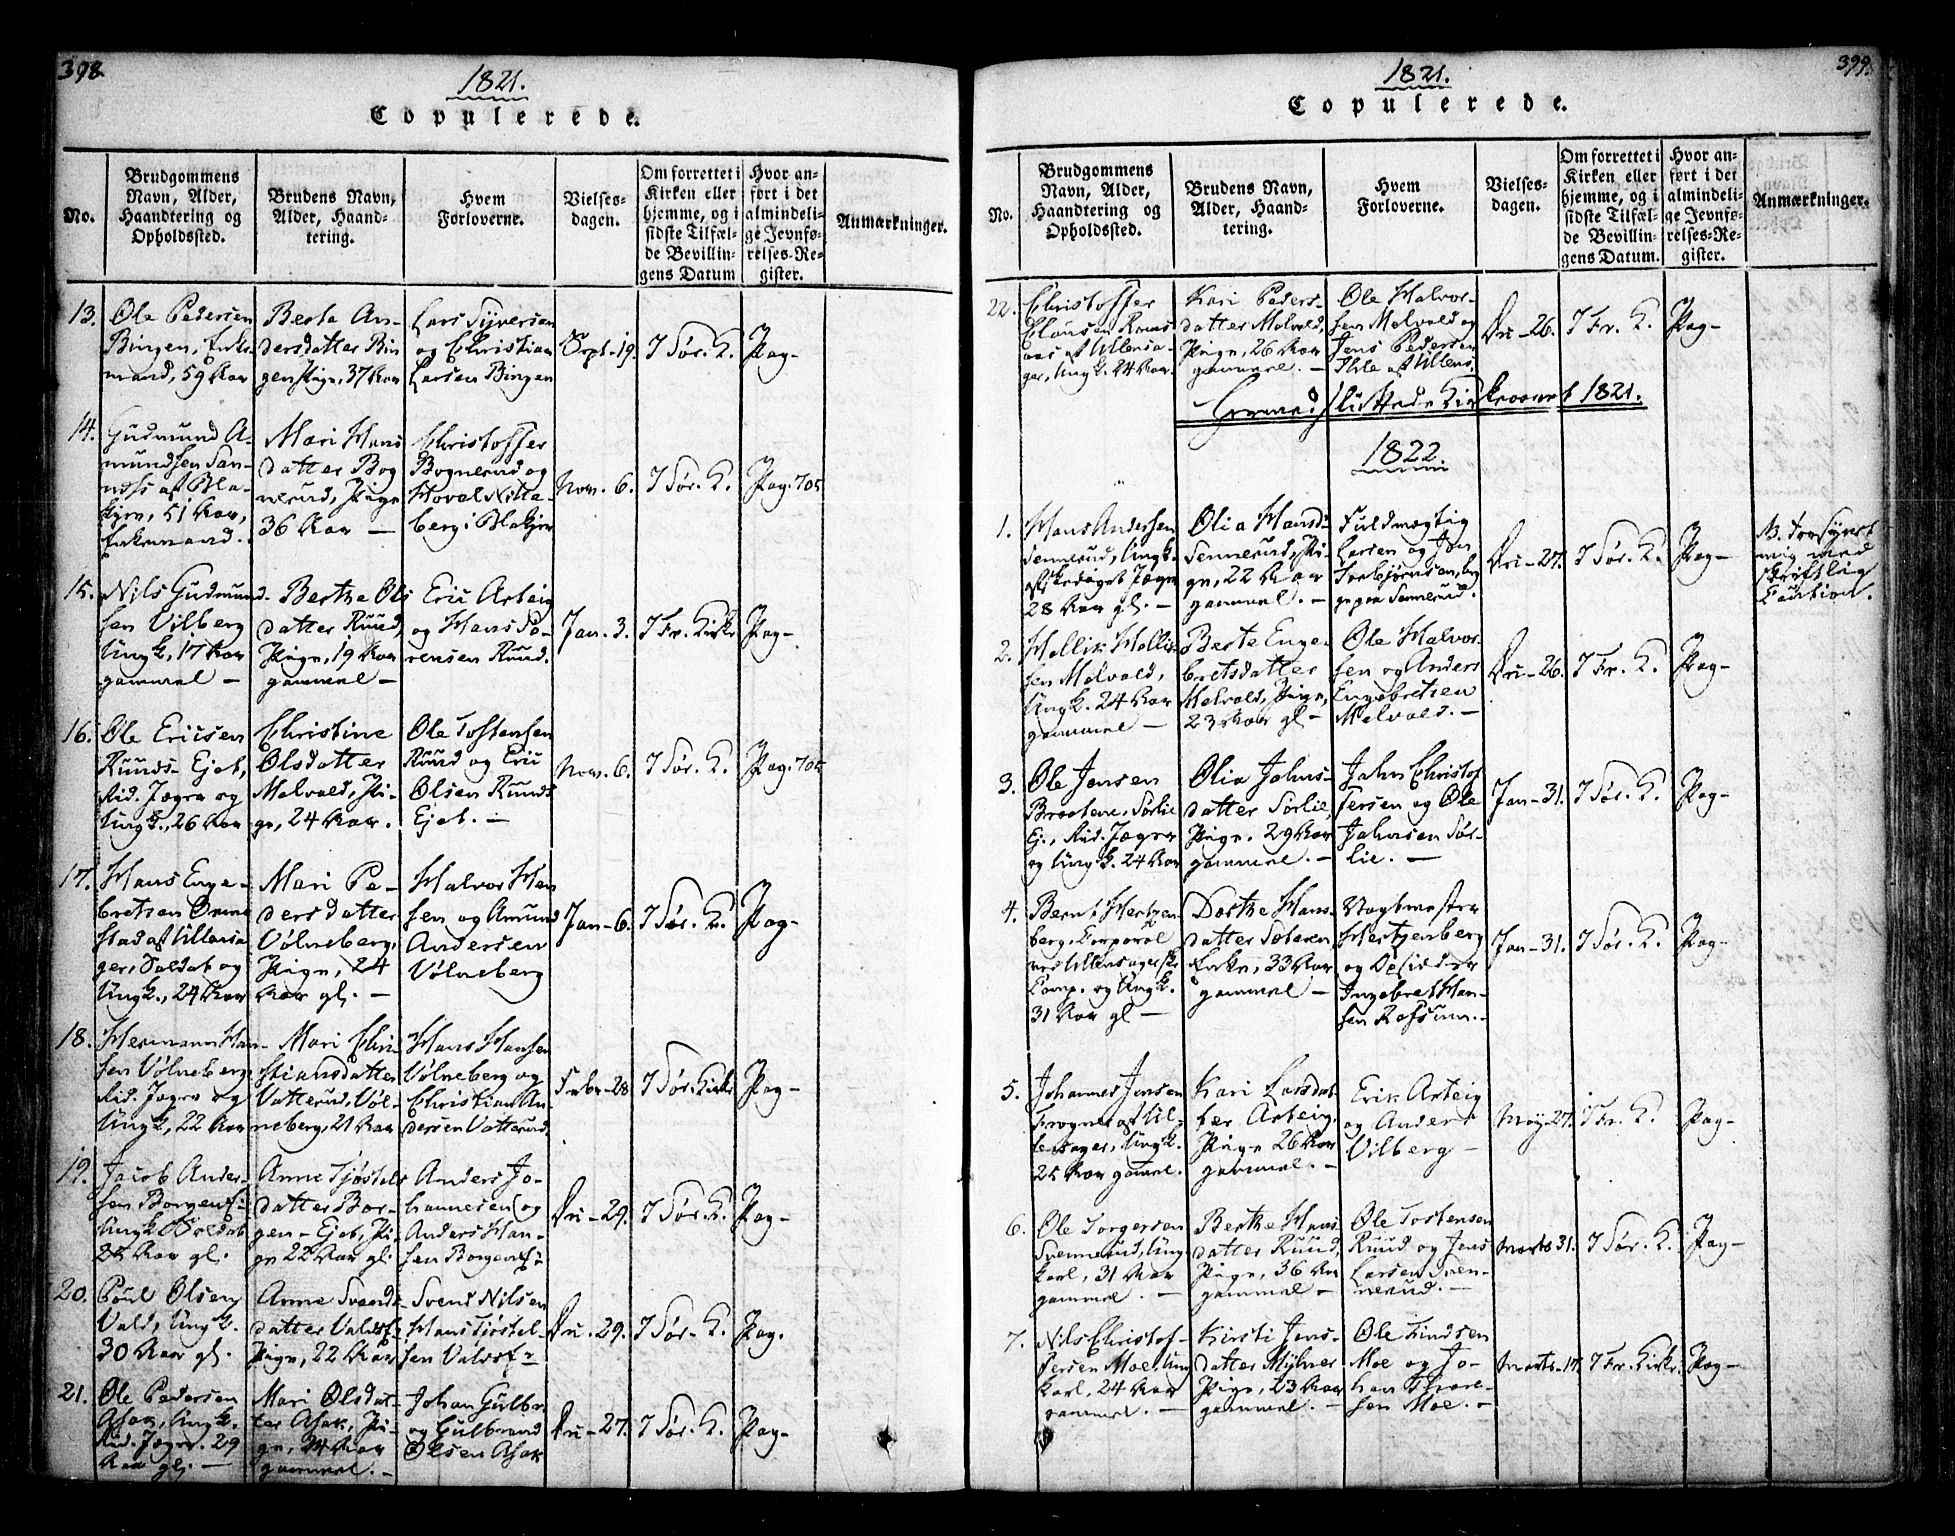 398.
1821.
Copulerede.
No.
Brudgommens
Navn, Alder,
Haandtering og
Opholdssted.
Brudens Navn,
Alder, Haand-
tering.
Hvem
Forloverne.
Vielses-
dagen.
Om forrettet i
Kirken eller
hjemme, og i
sidste Tilfæl-
de Bevillin-
gens Datum
Hvor an-
ført i det
almindeli-
ge Jevnfø-
relses-Re-
gister.
Anmærkninger.
13.
Ole Pedersen
Bingen, Enke-
mand, 59 Aar
Berte An-
dersdatter Bin-
gen Pige, 37 Aar
Lars Syversen
og Christian
Larsen Bingen
Sept. 19.
I Sør. K.
Pag-
14.
Gudmund A-
mundsen San-
af Bla-
kjer, 51 Aar,
Enkemand.
Mari Hans
datter Bog
nerud, Pige
36 Aar —
Christoffer
Bognerud og
Hoval Nitte-
berg i Blakjer
Nov. 6.
I Sør. K.
Pag. 705
15.
Nils Gudmund-
sen Vilberg
Ungk., 17 Aar
gammel —
Berthe Ols
datter Ruud,
Pige, 19 Aar
gammel —
Eric Arteig
og Hans Sø-
rensen Ruud.
Jan. 3.
I Fr. Kirke
Pag-
16.
Ole Ericsen
Ruuds- Ejet,
Rid. Jæger og
Ungk., 26 Aar
Christine
Olsdatter
Melvold, Pi-
ge, 24 Aar.
Ole Tostensen
Ruud og Eric
Olsen Ruuds
Ejet. —
Nov. 6.
I Sør. K.
Pag. 705
17.
Hans Enge-
bretsen Onne
stad af Ullensa
ger, Soldat og
Ungk., 24 Aar
Mari Pe-
dersdatter
Vølneberg,
Pige, 24
Aar gl. —
Halvor Han
sen og Amund
Andersen
Vølneberg
Jan- 6.
I Sør. K.
Pag-
18.
Hermann Han-
sen Vølneberg
Rid. Jæger og
Ungk., 22 Aar
Mari Chri-
stiansdatter
Vatterud, Vøl-
neberg, 21 Aar
Hans Hansen
Vølneberg og
Christian An
dersen Vatterud.
Febr-28
I Sør. Kirke
Pag-
19.
Jacob Ander-
sen Borgen
Ungk. Soldat
25 Aar gl.
Anne Tjøstels
datter Bor-
gen- Ejet, Pi-
ge 22 Aar gl.
Anders Jo-
hannesen og
Anders Han-
sen Borgen
29.
I Sør. K.
Pag-
20.
Poul Olsen
Vald, Ungk.
30 Aar gl.
Anne Svends-
datter Valds
Pige, 22 Aar
Svend Nilsen
Hans Tjøstel-
sen Valds
29.
I Sør. K.
Pag.
21.
Ole Pedersen
Asak, Ungk.
Rid. Jæger. 29
Aar gl. —
Mari Olsdat-
ter Asak, Pi-
ge, 24 Aar
gammel. —
Johan Gulbr.
og Gulbrand
Olsen Asak
27.
I Sør. K.
Pag-
399.
1821.
Copulerede.
No.
Brudgommens
Navn, Alder,
Haandtering og
Opholdssted.
Brudens Navn,
Alder, Haand-
tering.
Hvem
Forloverne.
Vielses-
dagen.
Om forrettet i
Kirken eller
hjemme, og i
sidste Tilfæl-
de Bevillin-
gens Datum.
Hvor an-
ført i det
almindeli-
ge Jevnfø-
relses-Re-
gister.
Anmærkninger.
22.
Christoffer
Clausen
af Ullensa-
ger, Ungk. 24 Aar.
Kari Peders-
datter Melvold,
Pige, 26 Aar
gammel. —
Ole Halvor-
sen Melvold og
Jens Pedersen
Ihle af Ullens.
26.
I Fr. K.
Pag-
Hermed sluttede Kirkeaaret 1821.
1822
1.
Hans Andersen
Sennerud, Ungk.
Jæger
28 Aar gl. —
Olia Hansd-
Sennerud, Pi-
ge, 22 Aar
gammel. —
Fuldmægtig
Larsen og Jon
Torbjørnsen, beg
ge paa Sennerud.
27.
I Sør. K.
Pag-
NB. Forsynet
mig med
skriftlig
Caution.
2.
Hellik Hellik
sen Melvold,
Ungk. 24 Aar
gammel —
Berte Enge-
bretsdatter
Melvold, Pige,
23 Aar gl —
Ole Halvor-
sen og Anders
Engebretsen
Melvold. —
26.
I Fr. K.
Pag-
3.
Ole Jensen
Braatene, Sørlie
Ej., Rid. Jæger
og Ungk. 24 Aar
Olia Johns-
datter Sørlie,
Pige. 29 Aar
gammel. —
John Christof
fersen og Ole
Johnsen Sør-
lie. —
Jan- 31.
I Sør. K.
Pag-
4.
Bernt Hertzen
berg, Corporal
ved Ullensagerske
Comp. og Ungk.
31 Aar gl —
Dorthe Hans-
datter
Enke, 33 Aar
gammel —
Vagtmester
Hertzenberg
og
Ingebret Han-
sen
Jan- 31.
I Sør. K.
Pag-
5.
Johannes Jensen
Frogner af Ul-
lensager, Ungk.
25 Aar gamel.
Kari Larsdat
ter Arteig,
Pige 26 Aar
gammel. —
Erik Arteig
og Anders
Vilberg —
May-27.
I Fr. K.
Pag-
6.
Ole Torgersen
Svennerud, Ung-
karl, 31 Aar
gammel. —
Berthe Hans
datter Ruud,
Pige, 36 Aar
gammel —
Ole Tostensen
Ruud og Jens
Larsen Sven-
nerud. —
Marts 31.
I Sør. K.
Pag-
7.
Nils Christof-
fersen Moe, Ung
karl, 24 Aar
gammel. —
Kirsti Jens-
datter Mylner
Pige, 23 Aar
gammel. —
Ole Findsen
Moe og Jo-
han Thore-
sen Moe. —
Marts- 17.
I Fr. Kirke.
Pag-